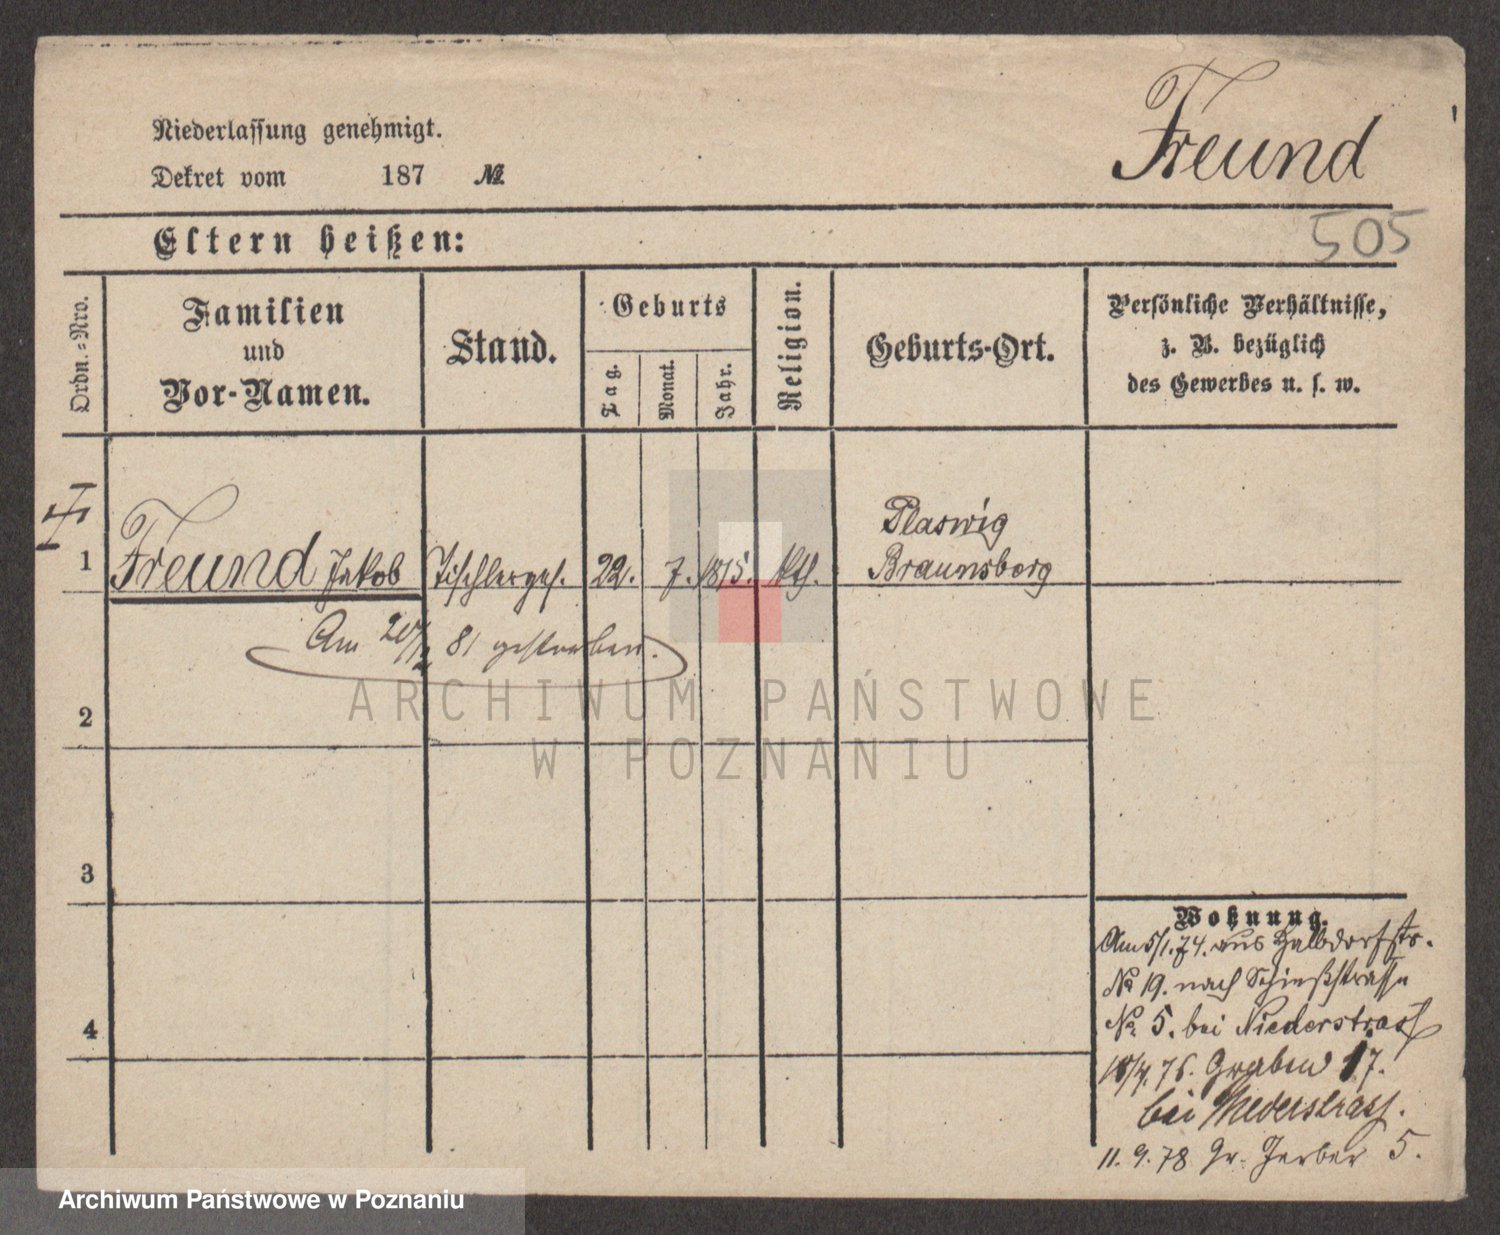 Niederlassung genehmigt.
Dekret vom 187 №
Freund
505
Eltern heißen:
Ordn.=Nro.
Familien
und
Vor-Namen.
Stand.
Geburts
Tag.
Monat.
Jahr.
Religion.
Geburts-Ort.
Persönliche Verhältnisse,
z. B. bezüglich
des Gewerbes u. s. w.
1 Freund Jakob Tischlerges. 22. 7. 1815. kth.
Plaswig
Braunsberg
Am 81 gestorben.
2
3
4
Wohnung.
Am 5/1. 74. aus Halbdorfstr.
№ 19. nach Schießstrasse
№ 5. bei Niederstrass
76. Graben 17.
bei Niederstrass.
11. 9. 78 Gr. Gerber 5.
ARCHIWUM PAŃSTWOWE
W POZNANIU
Archiwum Państwowe w Poznaniu